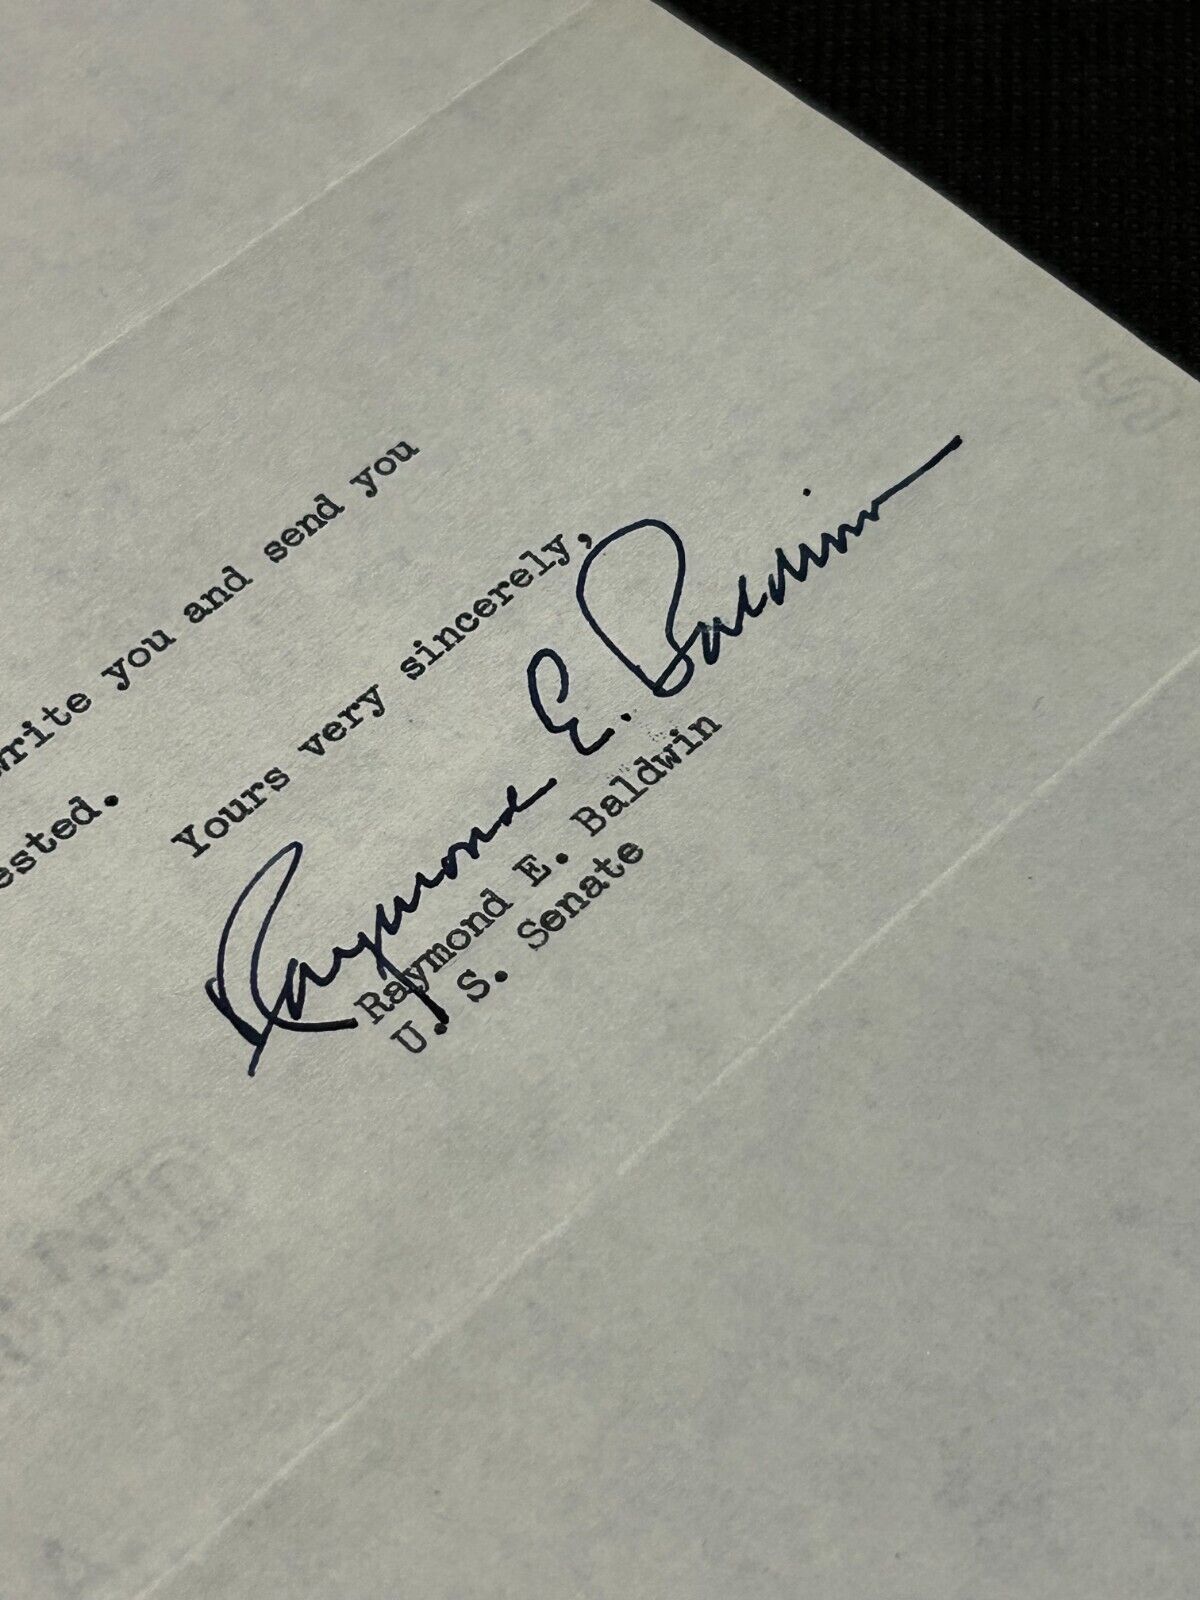 write you and send you
ested.
Yours very sincerely,
Raymond E. Baldwin
Raymond E. Baldwin
U. S. Senate